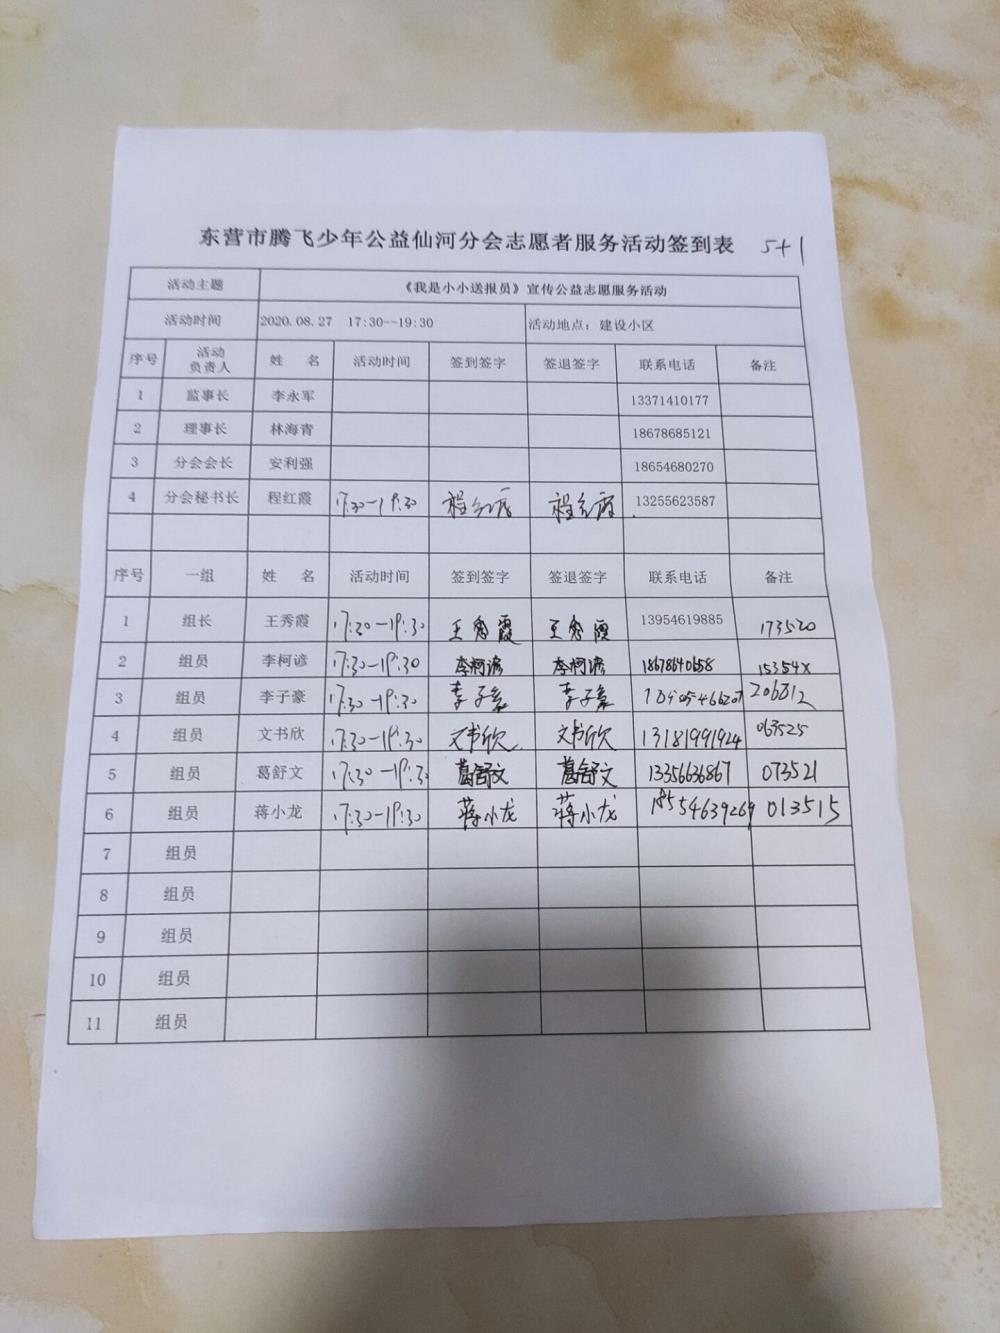 东营市腾飞少年公益仙河分会志愿者服务活动签到表 5+1
活动主题 《我是小小送报员》宣传公益志愿服务活动
活动时间 2020.08.27 17:30--19:30 活动地点：建设小区
序号 活动负责人 姓 名 活动时间 签到签字 签退签字 联系电话 备注
1 监事长 李永军 13371410177
2 理事长 林海青 18678685121
3 分会会长 安利强 18654680270
4 分会秘书长 程红霞 17:30-19:30 程红霞 程红霞 13255623587
序号 一组 姓 名 活动时间 签到签字 签退签字 联系电话 备注
1 组长 王秀霞 17:30-19:30 王秀霞 王秀霞 13954619885 173520
2 组员 李柯谚 17:30-19:30 李柯谚 李柯谚 18678640658 15354X
3 组员 李子豪 17:30-19:30 李子豪 李子豪
4 组员 文书欣 17:30-19:30 文书欣 文书欣 13181991924 063525
5 组员 葛舒文 17:30-19:30 葛舒文 葛舒文 13356636867 073521
6 组员 蒋小龙 17:30-19:30 蒋小龙 蒋小龙 18554639269 013515
7 组员
8 组员
9 组员
10 组员
11 组员